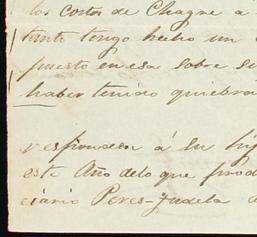 los cortos de Chagre a
tanto tengo hecho un
puesto en esa sobre su
haber tenido quiebra

responden á su hij
este Año de lo que prod
ciario Peres-Judela a